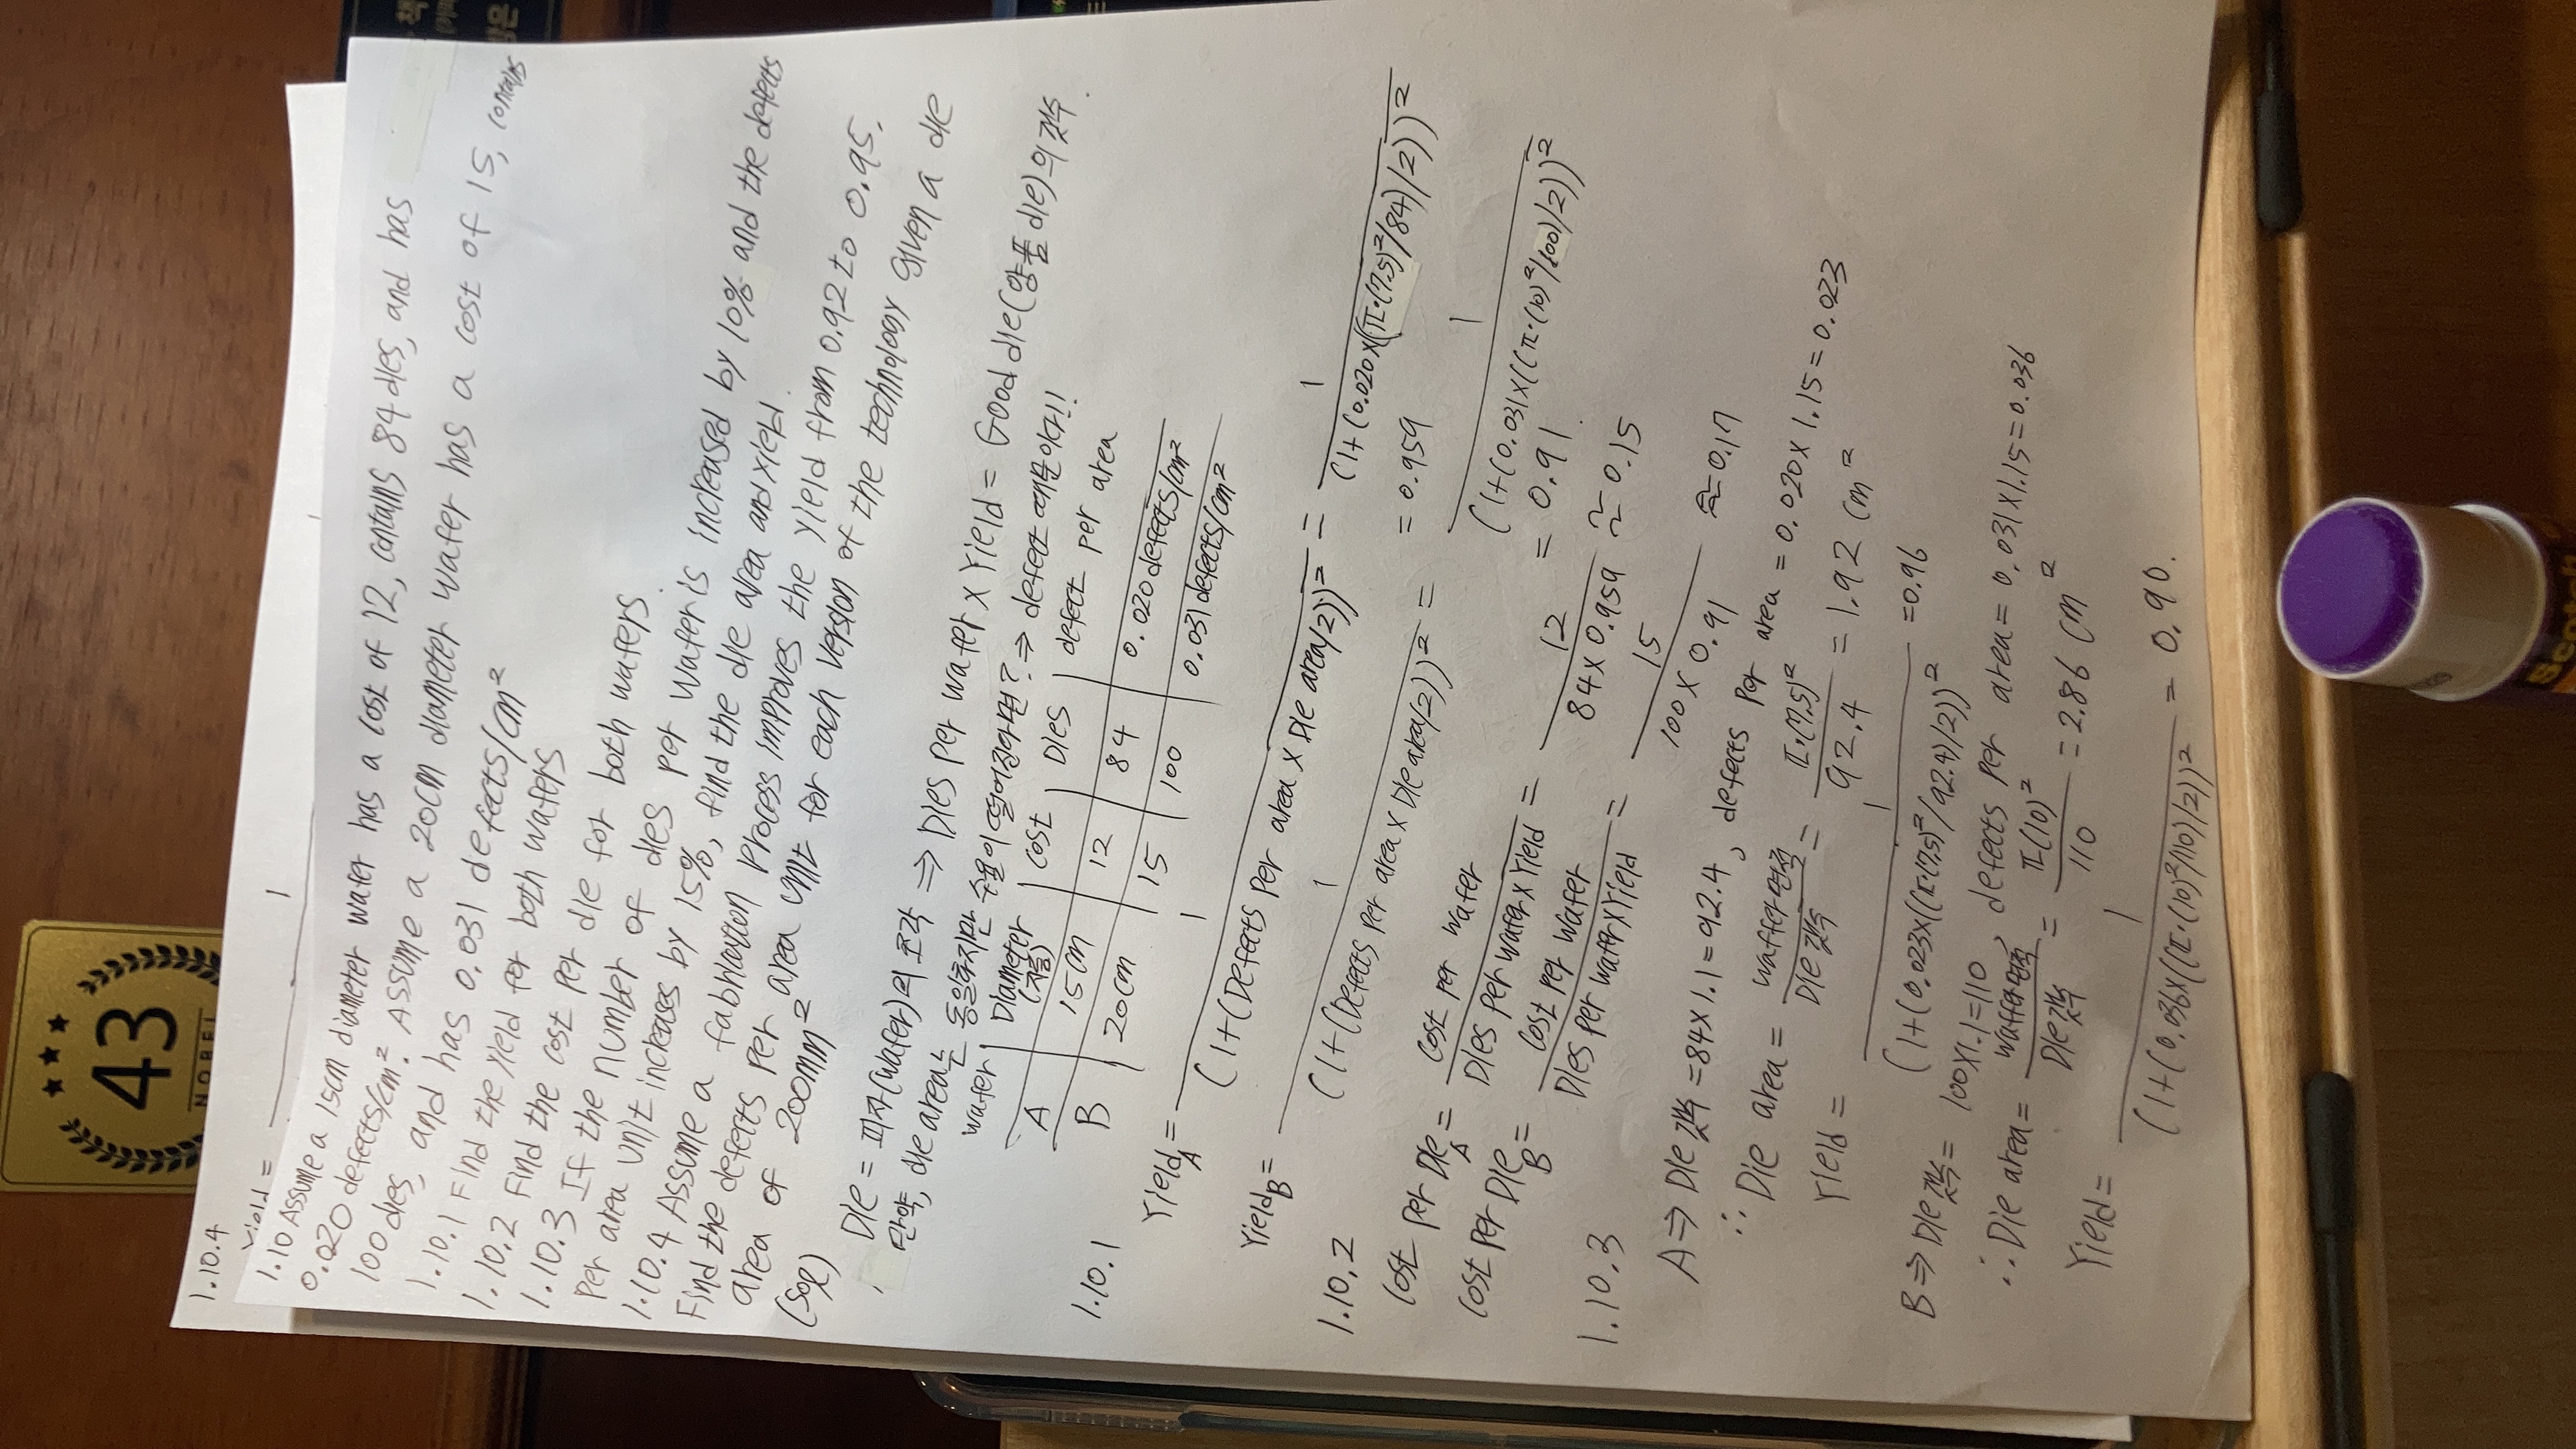 43
NOBEL
1.10.4
Yield = 1
1.10 Assume a 15cm diameter wafer has a cost of 12, contains 84 dies, and has
0.020 defects/cm². Assume a 20cm diameter wafer has a cost of 15, contains
100 dies, and has 0.031 defects/cm²
1.10.1 Find the yield for both wafers
1.10.2 Find the cost per die for both wafers.
1.10.3 If the number of dies per wafer is increased by 10% and the defects
per area unit increases by 15%, find the die area and yield.
1.10.4 Assume a fabrication process improves the yield from 0.92 to 0.95.
Find the defects per area unit for each version of the technology given a die
area of 200mm²
(sol)
Die = 피자(wafer)의 조각 ⇒ Dies per wafer x Yield = Good die(양품 die)의 갯수.
만약, die area는 동일하지만 수율이 떨어진다면? ⇒ defect 때문이다!!
wafer Diameter (지름) cost Dies defect per area
A 15cm 12 84 0.020 defects/cm²
B 20cm 15 100 0.031 defects/cm²
1.10.1
Yield_A = 1 / (1+(Defects per area x Die area/2))² = 1 / (1+(0.020x((π·(7.5)²/84)/2))²
= 0.959
Yield_B = 1 / (1+(Defects per area x Die area/2))² = 1 / (1+(0.031x((π·(10)²/100)/2))²
= 0.91.
1.10.2
cost per Die_A = cost per wafer / Dies per wafer x Yield = 12 / 84 x 0.959 ≈ 0.15
cost per Die_B = cost per wafer / Dies per wafer x Yield = 15 / 100 x 0.91 ≈ 0.17
1.10.3
A ⇒ Die 갯수 = 84 x 1.1 = 92.4, defects per area = 0.020 x 1.15 = 0.023
∴ Die area = waffer면적 / Die 갯수 = π·(7.5)² / 92.4 = 1.92 cm²
Yield = 1 / (1+(0.023x((π·(7.5)²/92.4)/2))² = 0.96
B ⇒ Die 갯수 = 100x1.1=110, defects per area = 0.031x1.15=0.036
∴ Die area = waffer면적 / Die 갯수 = π(10)² / 110 = 2.86 cm²
Yield = 1 / (1+(0.036x((π·(10)²/110)/2))² = 0.90.
책
은
Scotch